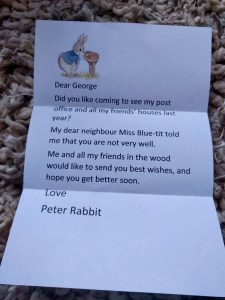 Dear George
Did you like coming to see my post
office and all my friends' houses last
year?
My dear neighbour Miss Blue-tit told
me that you are not very well.
Me and all my friends in the wood
would like to send you best wishes, and
hope you get better soon.
Love
Peter Rabbit